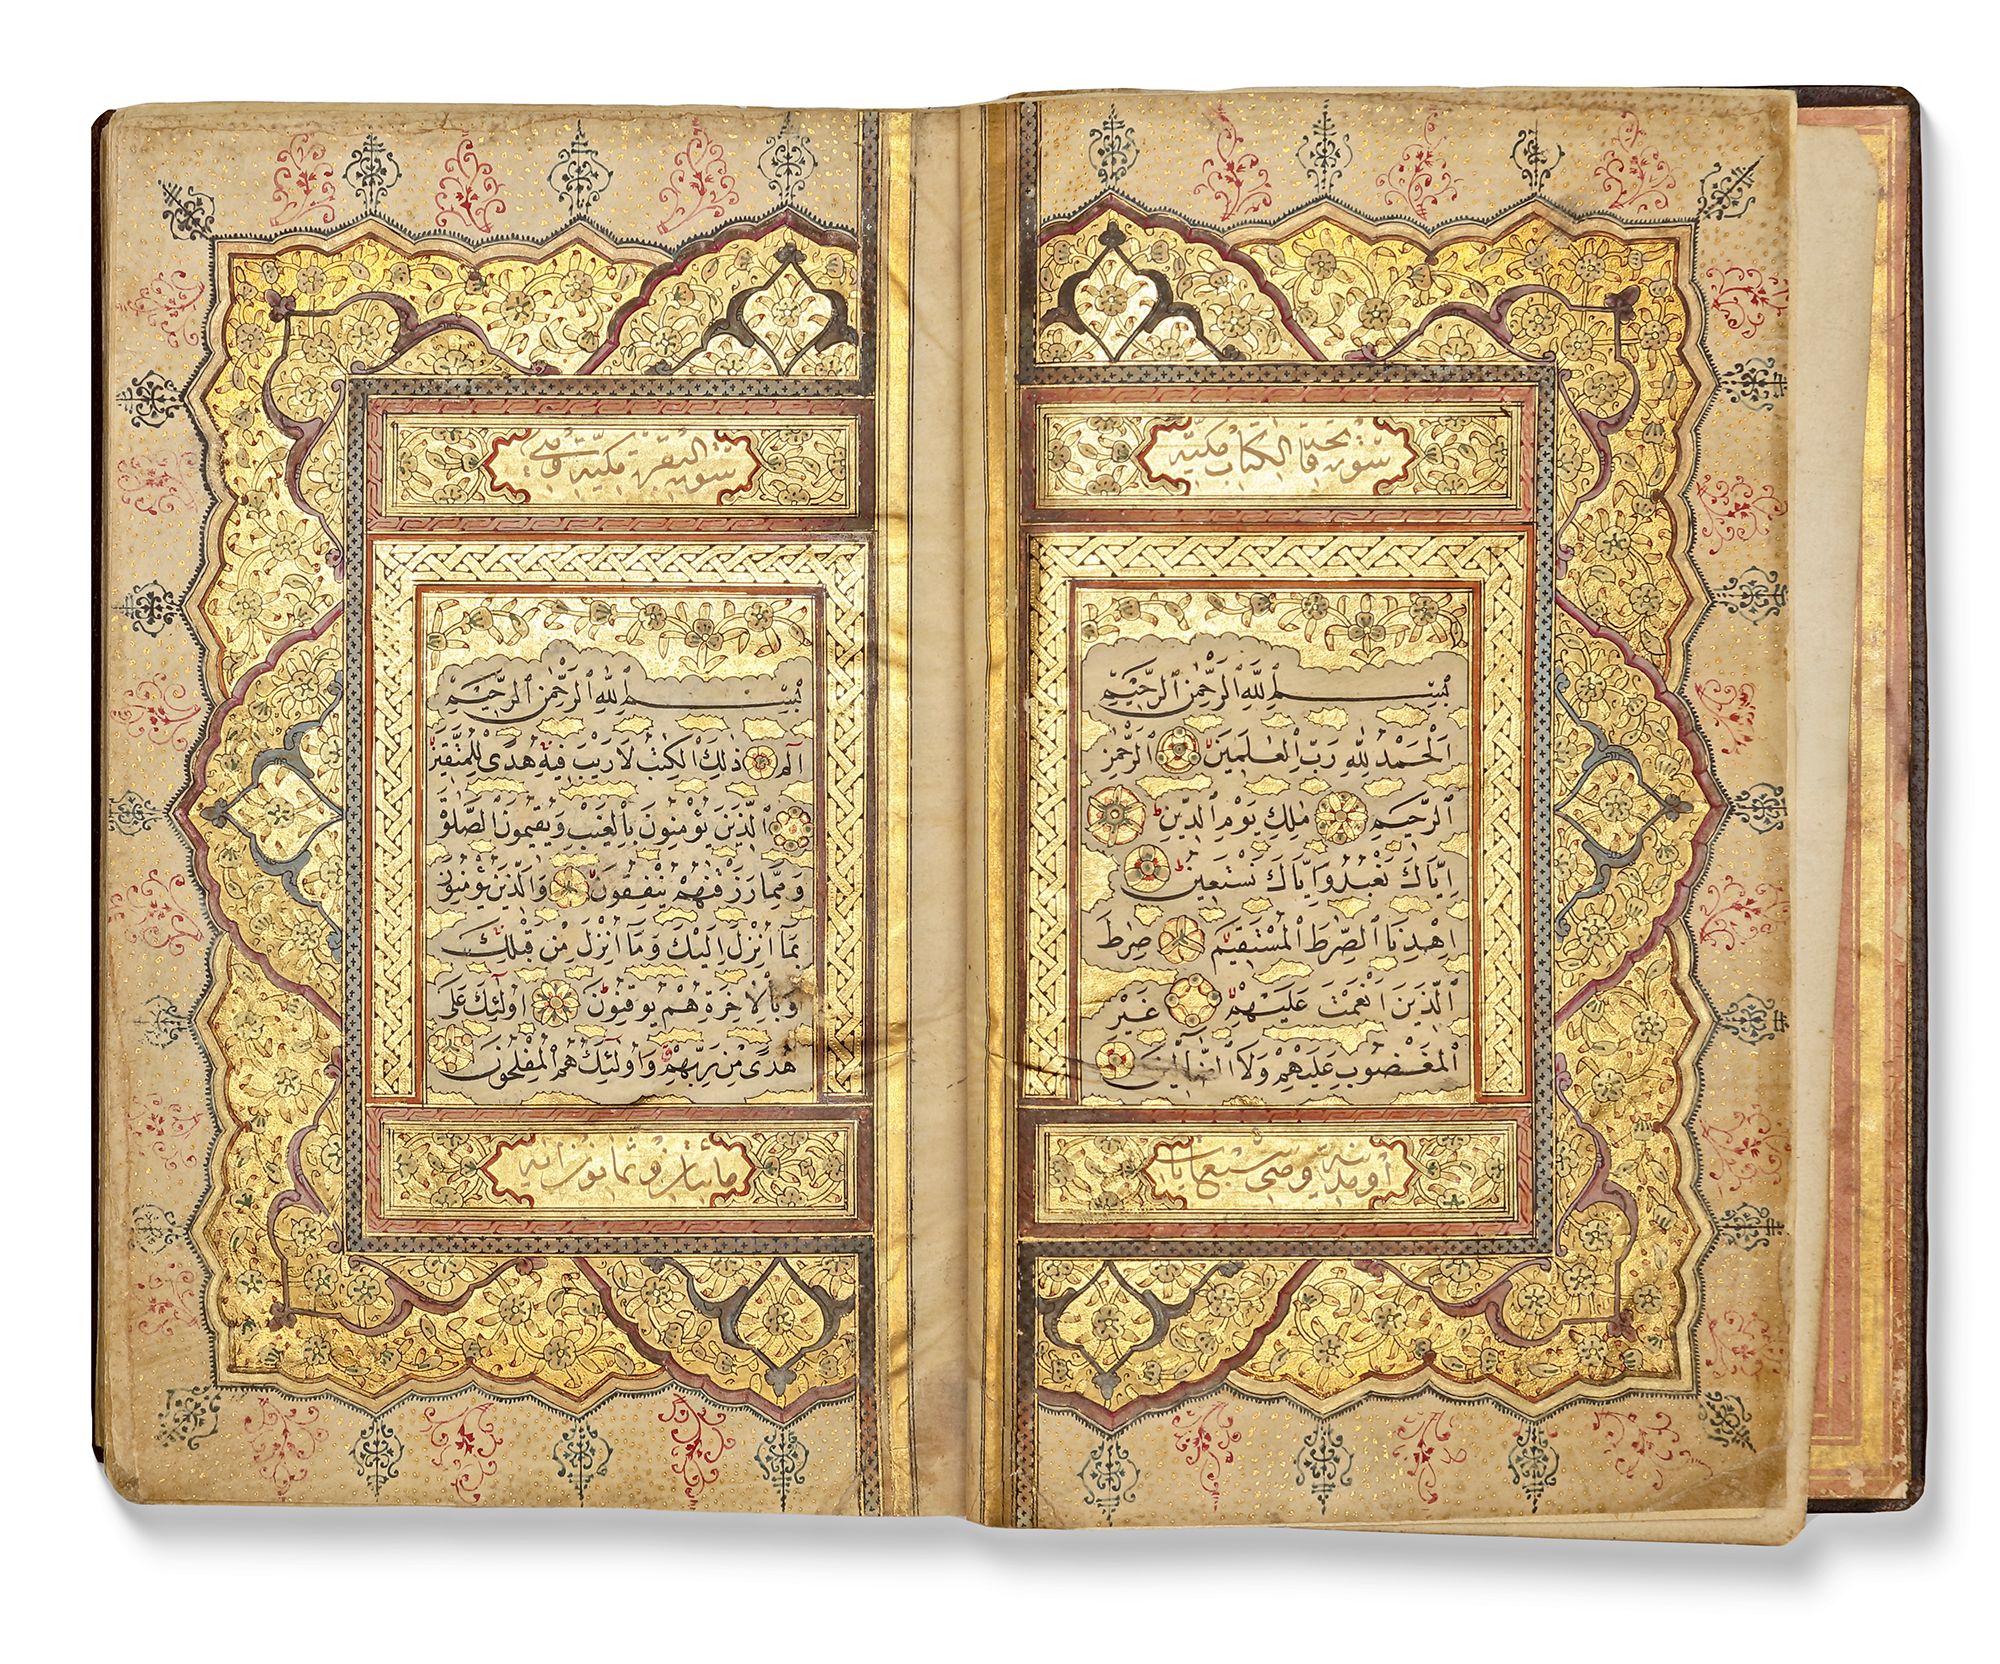 سورة فاتحة الكتاب مكية
بِسْمِ ٱللَّهِ ٱلرَّحْمٰنِ ٱلرَّحِيمِ
اَلْحَمْدُ لِلّٰهِ رَبِّ ٱلْعٰلَمِينَ اَلرَّحْمٰنِ
ٱلرَّحِيمِ مٰلِكِ يَوْمِ ٱلدِّينِ
اِيَّاكَ نَعْبُدُ وَاِيَّاكَ نَسْتَعِينُ
اِهْدِنَا ٱلصِّرَطَ ٱلْمُسْتَقِيمَ صِرَطَ
ٱلَّذِينَ اَنْعَمْتَ عَلَيْهِمْ غَيْرِ
ٱلْمَغْضُوبِ عَلَيْهِمْ وَلَا ٱلضَّالِّينَ
او مدنية وهي سبع ايات
سورة البقرة مكية وهي
بِسْمِ ٱللَّهِ ٱلرَّحْمٰنِ ٱلرَّحِيمِ
الٓمٓ ذٰلِكَ ٱلْكِتٰبُ لَا رَيْبَ فِيهِ هُدًى لِلْمُتَّقِينَ
اَلَّذِينَ يُؤْمِنُونَ بِٱلْغَيْبِ وَيُقِيمُونَ ٱلصَّلٰوةَ
وَمِمَّا رَزَقْنٰهُمْ يُنْفِقُونَ وَٱلَّذِينَ يُؤْمِنُونَ
بِمَٓا اُنْزِلَ اِلَيْكَ وَمَٓا اُنْزِلَ مِنْ قَبْلِكَ
وَبِٱلْاٰخِرَةِ هُمْ يُوقِنُونَ اُولٰٓئِكَ عَلٰى
هُدًى مِنْ رَبِّهِمْ وَاُولٰٓئِكَ هُمُ ٱلْمُفْلِحُونَ
مائتان وثمانون اية